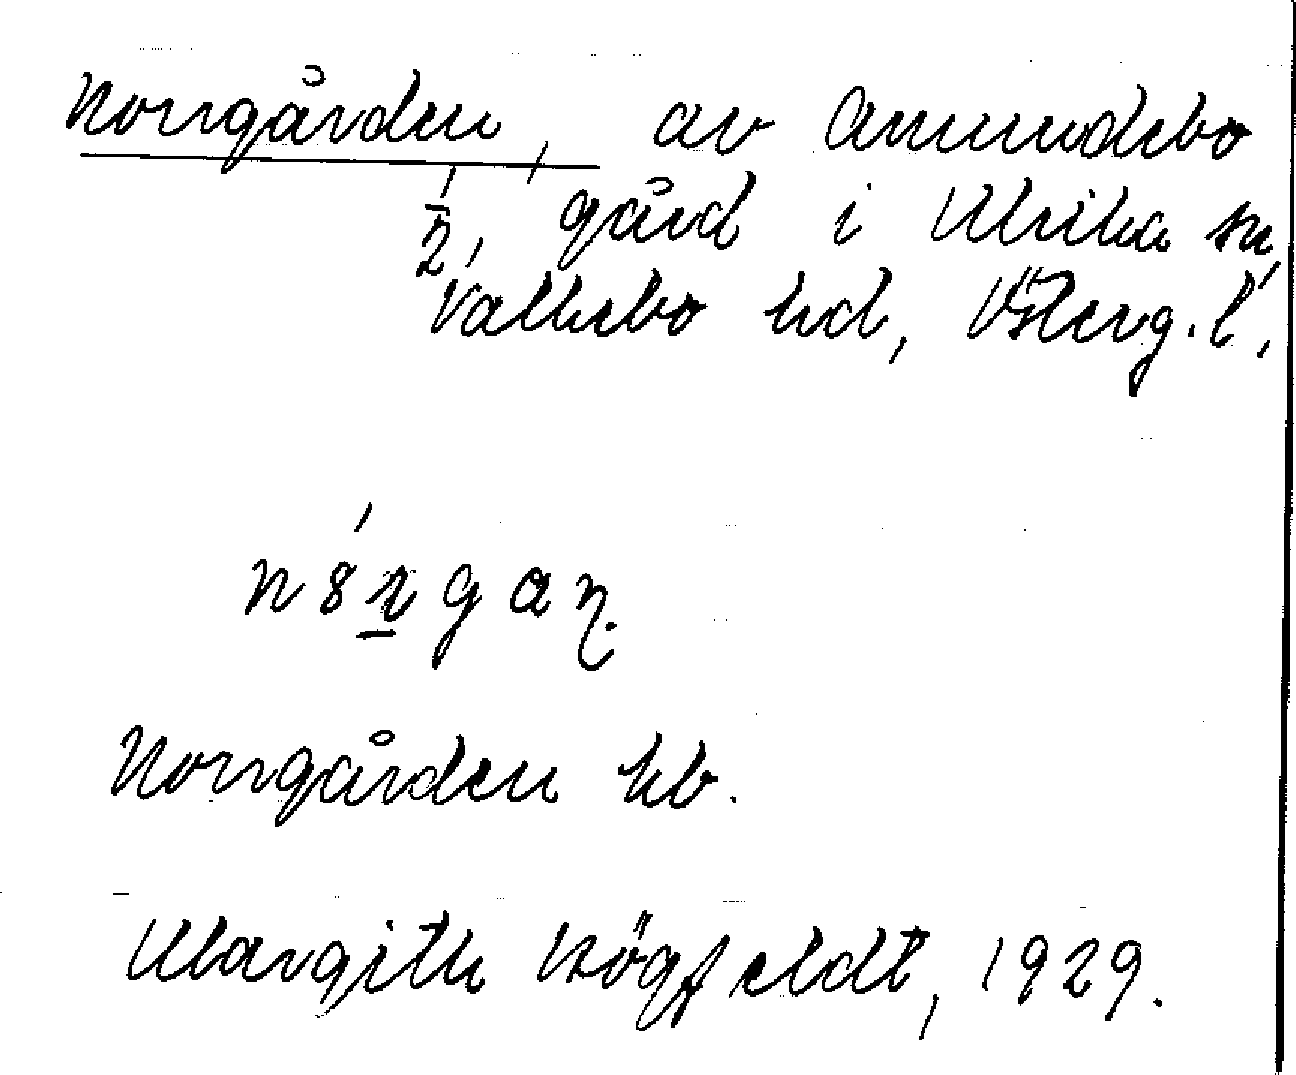 Norrgården, av Amundebo
1/2, gård i Ulrika sn,
Valkebo hd, Österg. l.,
Norrgården kb.
Margith Högfeldt, 1929.